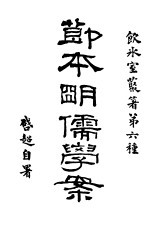 飲氷室叢著第六種
節本明儒學案
啓超自署